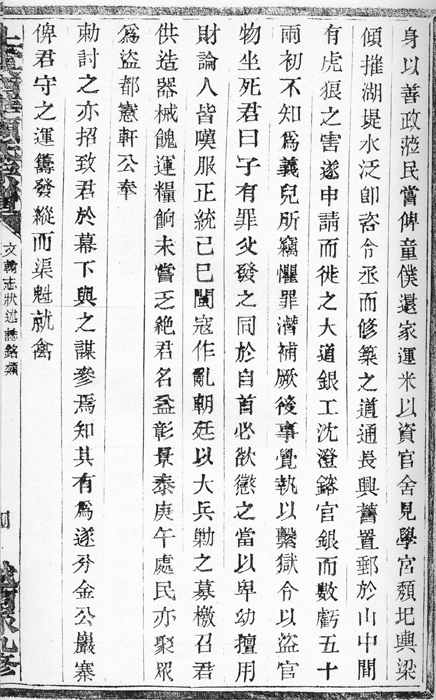 身以善政蒞民嘗俾童僕還家運米以資官舍見學宮頹圯輿梁
傾摧湖堤水泛卽咨令丞而修築之道通長興舊置郵於山中間
有虎狼之害遂申請而徙之大道銀工沈澄鎔官銀而數虧五十
兩初不知爲義兒所竊懼罪潛補厥後事覺執以繫獄令以盜官
物坐死君曰子有罪父發之同於自首必欲懲之當以卑幼擅用
財論人皆嘆服正統己巳閩寇作亂朝廷以大兵勦之募檄召君
供造器械餽運糧餉未嘗乏絕君名益彰景泰庚午處民亦聚眾
爲盜都憲軒公奉
勅討之亦招致君於幕下與之謀參焉知其有爲遂分金公巖寨
俾君守之運籌發縱而渠魁就禽
文翰志狀述誌銘類